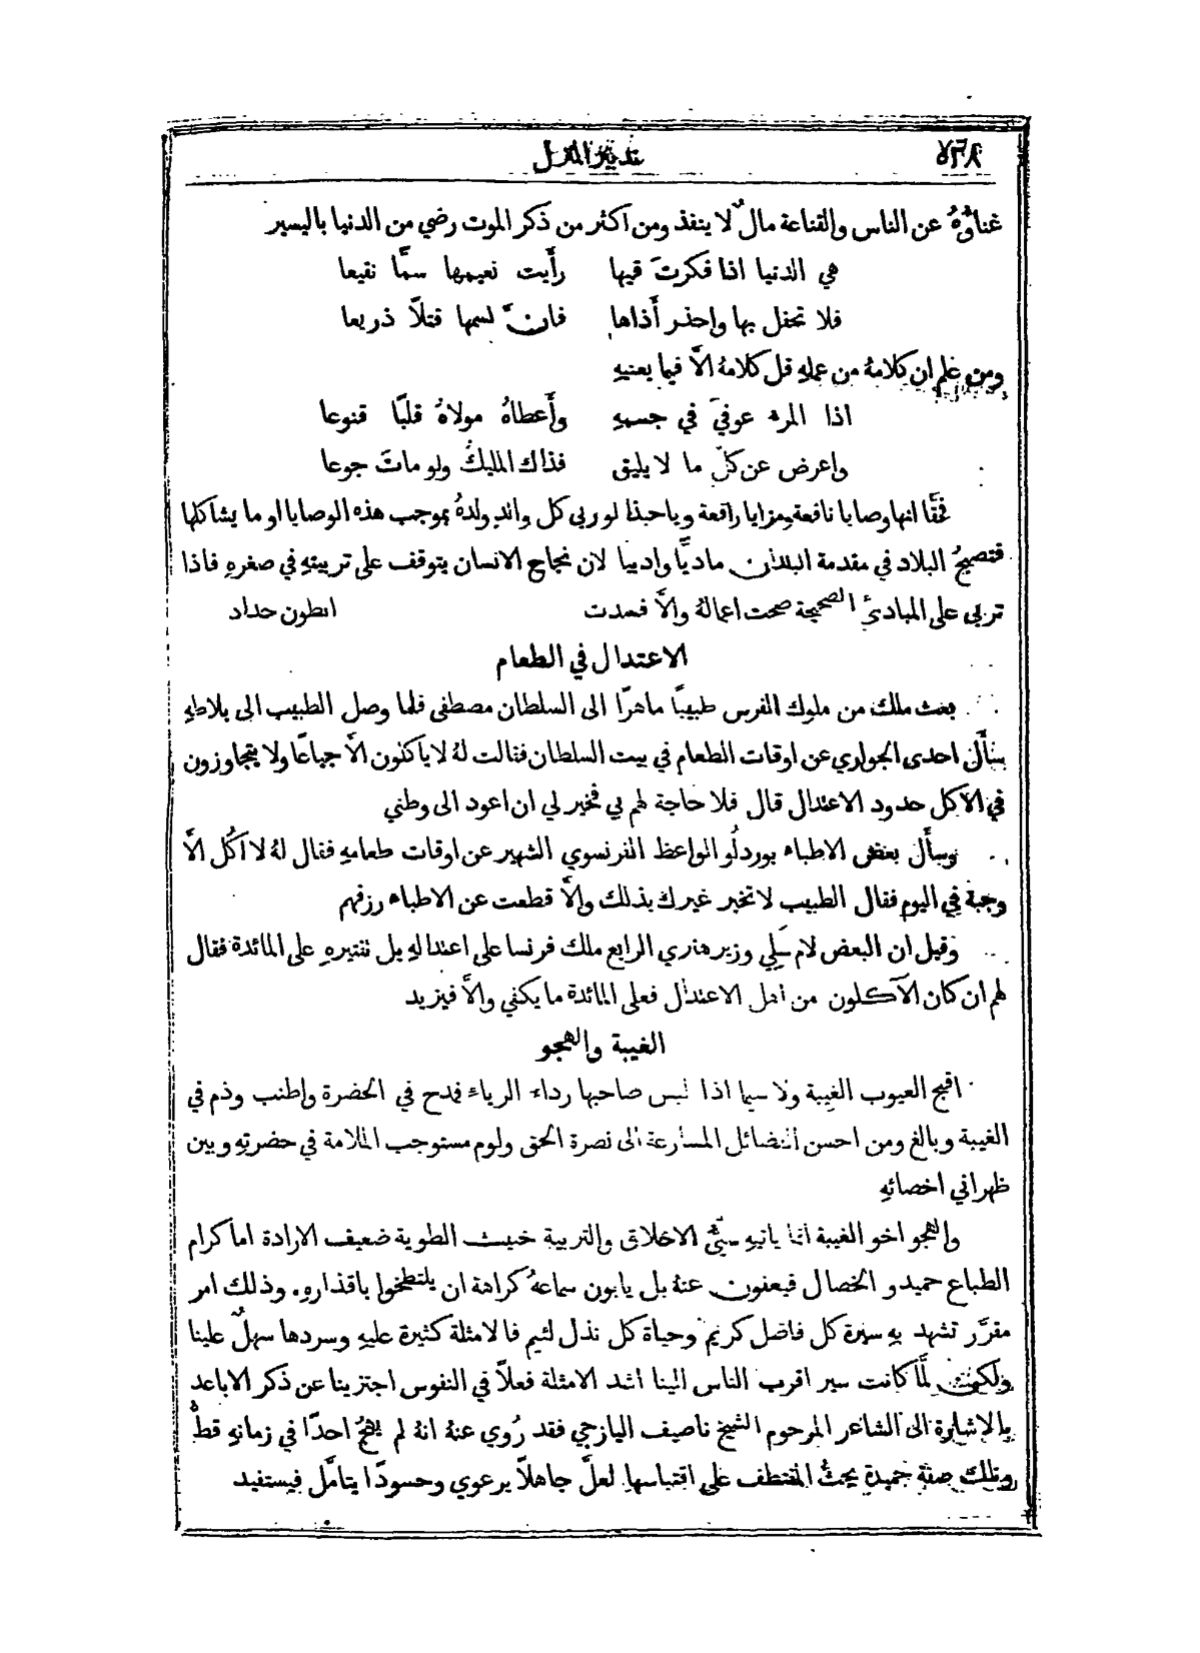 تدبير المنزل
غناؤهُ عن الناس والقناعة مالٌ لا ينفذ ومن اكثر من ذكر الموت رضي من الدنيا باليسير
هي الدنيا اذا فكرتَ فيها رأَيت نعيمها سمًّا نقيعا
فلا تحفل بها واحذر أَذاها فانَّ لسمها قتلاً ذريعا
ومن علم ان كلامهُ من عملهِ قل كلامهُ الاَّ فيما يعنيهِ
اذا المرء عوفيَ في جسمهِ وأَعطاهُ مولاهُ قلبًا قنوعا
واعرض عن كلّ ما لا يليق فذاك المليكُ ولو ماتَ جوعا
فحقًّا انها وصايا نافعة ومزايا رافعة ويا حبذا لو ربى كل والدٍ ولدهُ بموجب هذه الوصايا او ما يشاكلها
فتصبحُ البلاد في مقدمة البلدان ماديًّا وادبيا لان نجاح الانسان يتوقف على تربيتهِ في صغرهِ فاذا
تربى على المبادئُ الصحيحة صحت اعمالهُ والاَّ فسدت انطون حداد
الاعتدال في الطعام
بعث ملك من ملوك الفرس طبيبًا ماهرًا الى السلطان مصطفى فلما وصل الطبيب الى بلاطهِ
سأَل احدى الجواري عن اوقات الطعام في بيت السلطان فقالت لهُ لا يأكلون الاَّ جياعًا ولا يتجاوزون
في الأكل حدود الاعتدال قال فلا حاجة لهم بي فخير لي ان اعود الى وطني
وسأَل بعض الاطباء بوردلُو الواعظ الفرنسوي الشهير عن اوقات طعامهِ فقال لهُ لا آكُل الاَّ
وجبة في اليوم فقال الطبيب لا تخبر غيرك بذلك والاَّ قطعت عن الاطباء رزقهم
وقيل ان البعض لام سَلِي وزير هنري الرابع ملك فرنسا على اعتدالهِ بل تقتيرهِ على المائدة فقال
لهم ان كان الآكلون من اهل الاعتدال فعلى المائدة ما يكفي والاَّ فيزيد
الغيبة والهجو
اقبح العيوب الغيبة ولا سيما اذا لبس صاحبها رداء الرياء فمدح في الحضرة واطنب وذم في
الغيبة وبالغ ومن احسن الفضائل المسارعة الى نصرة الحق ولوم مستوجب الملامة في حضرتهِ وبين
ظهراني اخصائهِ
والهجو اخو الغيبة انما يانيهِ سيّئُ الاخلاق والتربية خبيث الطوية ضعيف الارادة اما كرام
الطباع حميدو الخصال فيعفون عنهُ بل يابون سماعهُ كراهة ان يلتطخوا باقذارهِ. وذلك امر
مقرَّر تشهد بهِ سيرة كل فاضل كريم وحياة كل نذل لئيم فالامثلة كثيرة عليهِ وسردها سهلٌ علينا
ولكن لمَّا كانت سير اقرب الناس الينا اشد الامثلة فعلاً في النفوس اجتزينا عن ذكر الاباعد
بالاشارة الى الشاعر المرحوم الشيخ ناصيف اليازجي فقد رُوي عنهُ انهُ لم يهجُ احدًا في زمانهِ قطُّ
وتلك صفة حميدة يحثُّ المقتطف على اقتباسها لعلَّ جاهلاً يرعوي وحسودًا يتأمَّل فيستفيد